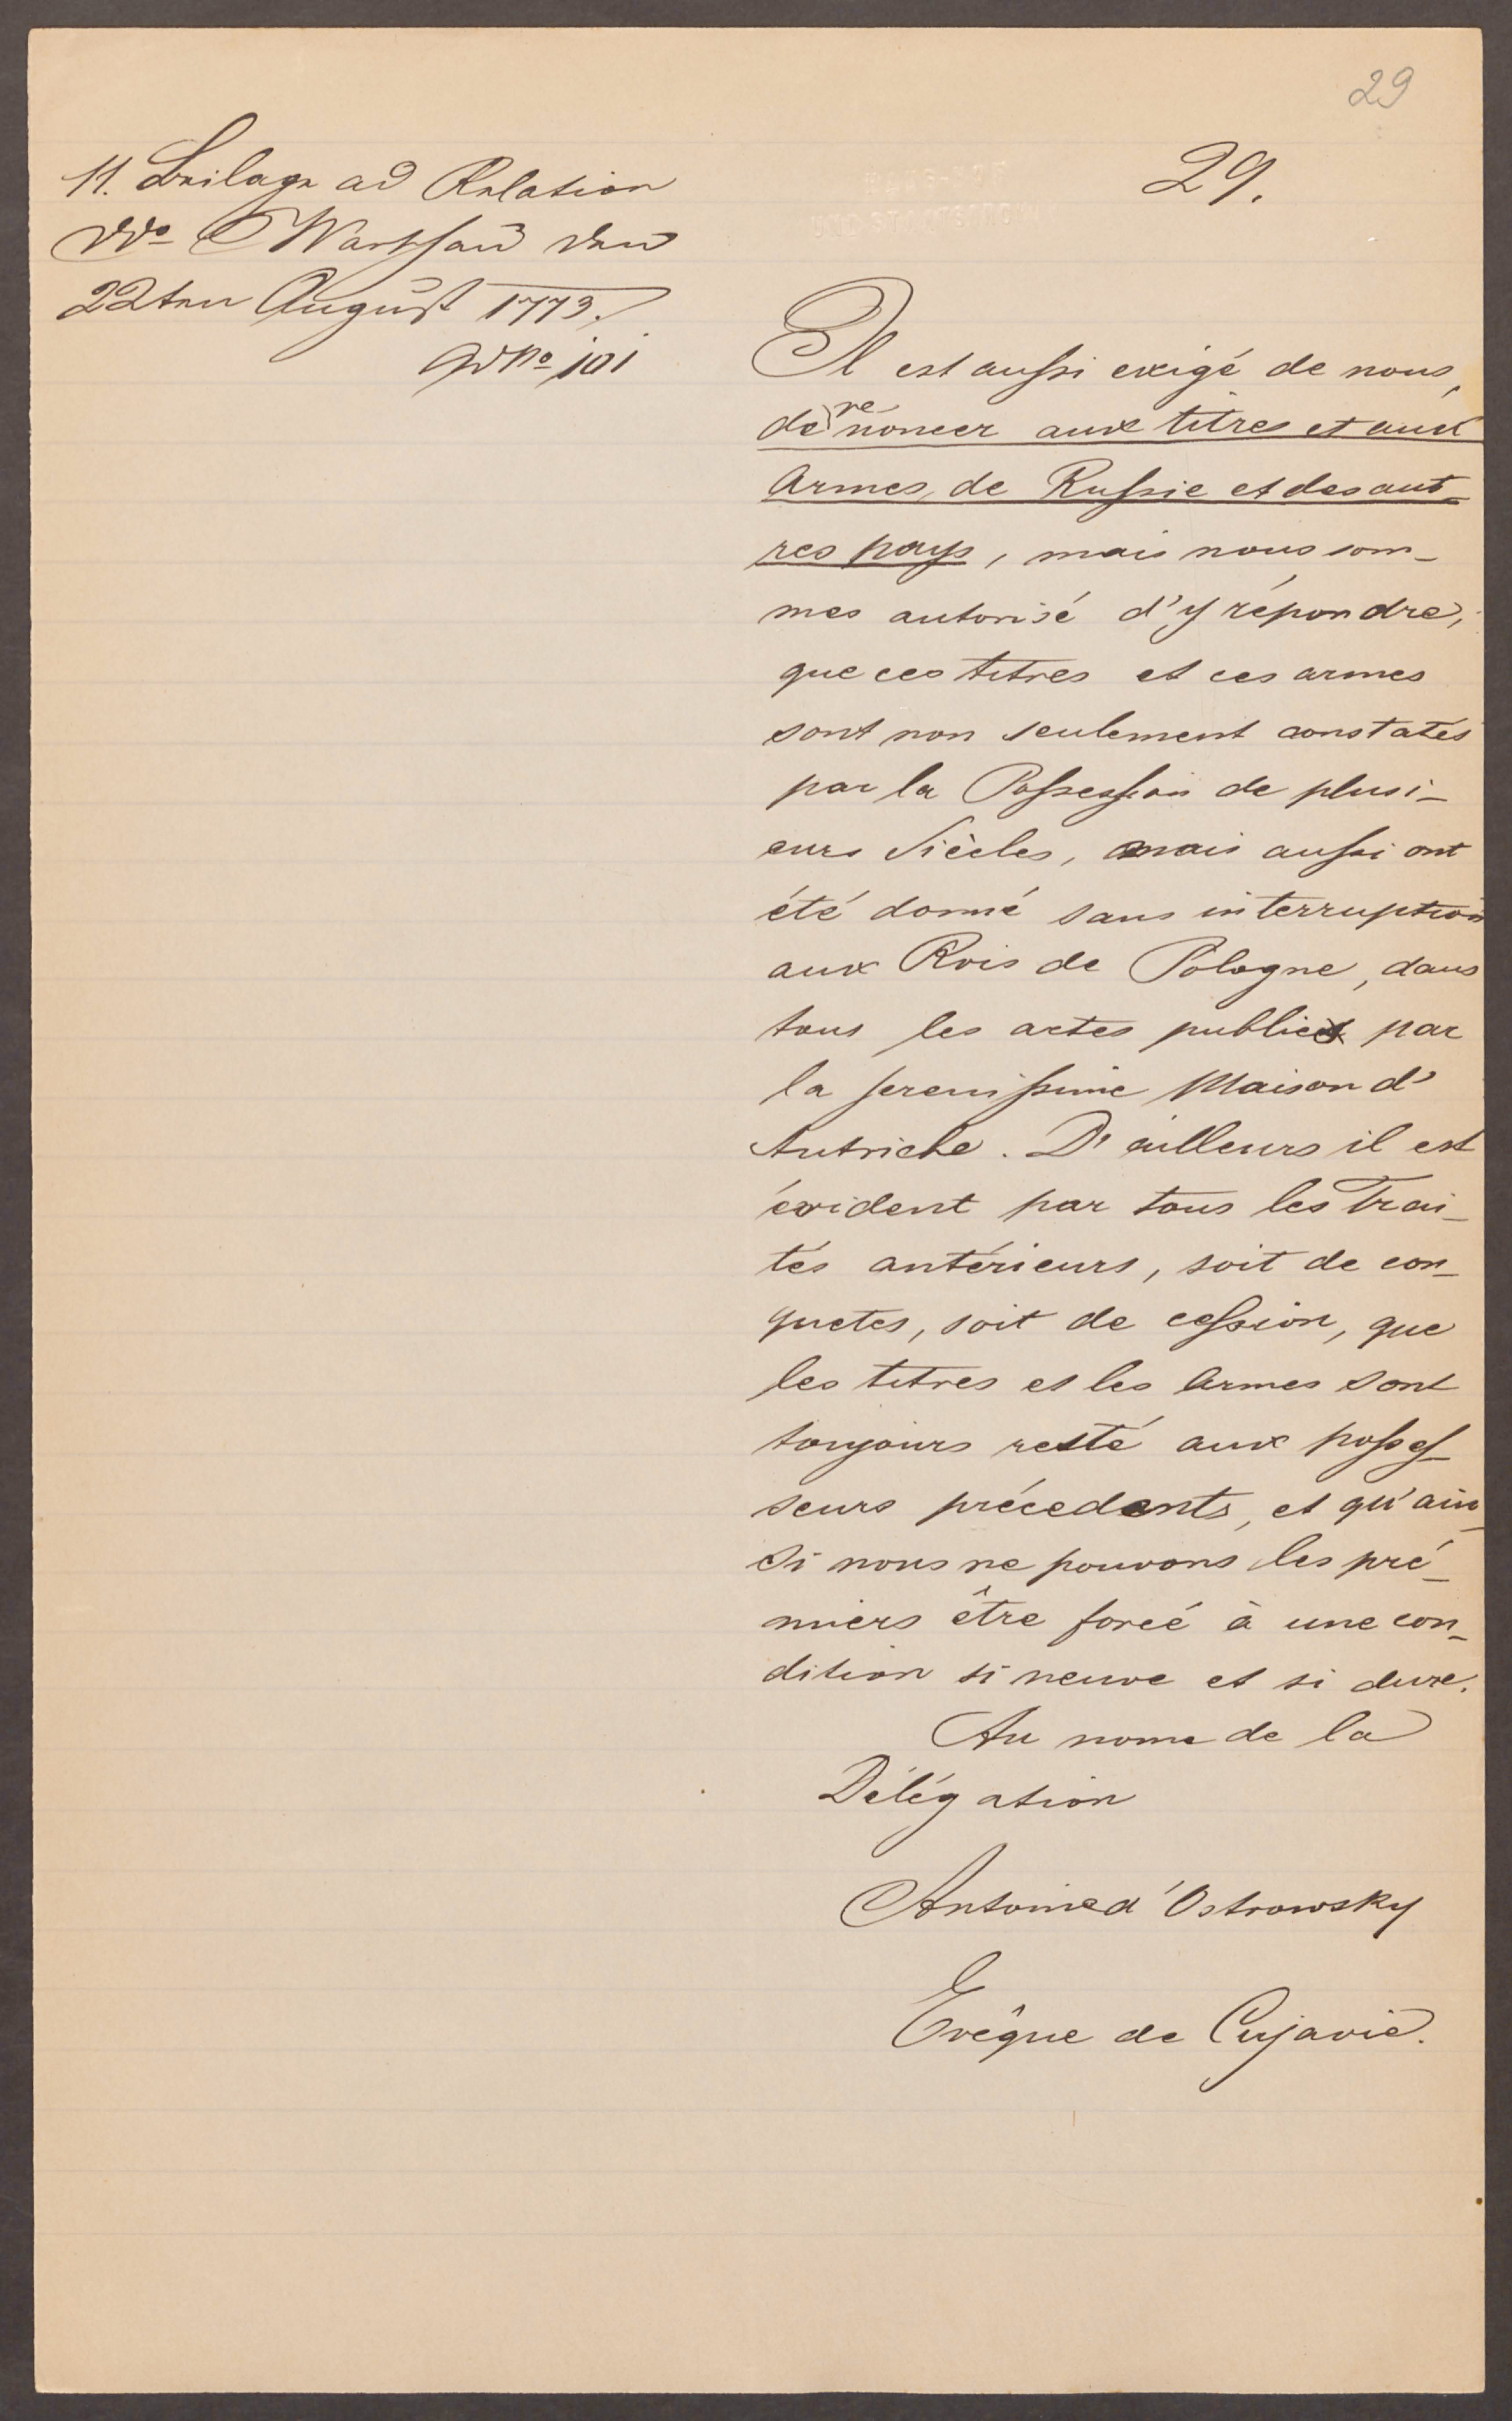 29
29.
11. Beilage ad Relation
ddo Warschau den
22ten August 1773.
ad No 101
Il est aussi exigé de nous,
de renoncer aux titres et aux
Armes, de Russie et des aut-
res pays, mais nous som-
mes autorisé d'y répondre,
que ces titres et ces armes
sont non seulement constatés
par la Possession de plusi-
eurs Siècles, mais aussi ont
été donné sans interruption
aux Rois de Pologne, dans
tous les actes publics par
la serenissime Maison d'
Autriche. D'ailleurs il est
évident par tous les Trai-
tés antérieurs, soit de con-
quetes, soit de cession, que
les titres et les Armes sont
toujours resté aux posses-
seurs précedents, et qu'ain-
si nous ne pouvons les pré-
miers être forcé à une con-
dition si neuve et si dure.
Au nom de la
Délégation
Antoine d'Ostrowsky
Evêque de Cujavie.